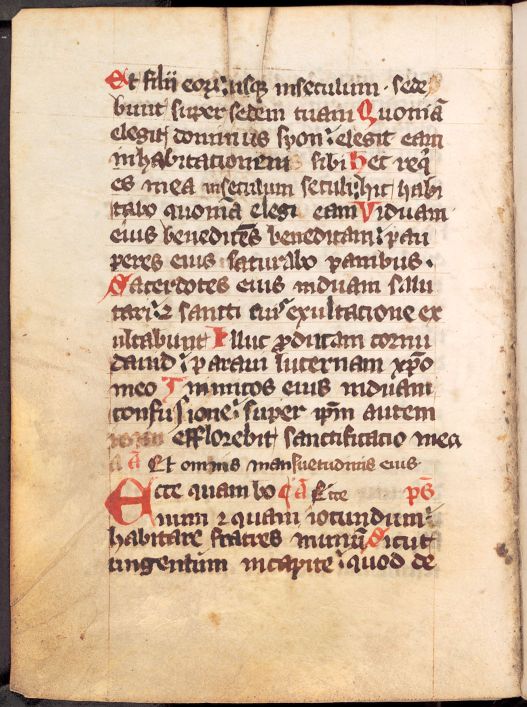 Et filii eorũ: usque inseculum · sede
bunt super sedem tuam Quoniã
elegit dominus syon: elegit eam
inhabitationem sibi Hec req̃
es mea inseculum seculi: hic habi
tabo quoniã elegi eam Viduam
eius benedicẽs benedicam: pau
peres eius saturabo panibus ·
Sacerdotes eius induam salu
tari: ⁊ sancti eiꝰ exultacione ex
ultabunt Illuc ꝓducam cornu
dauid: paraui lucernam xp̃o
meo Inimicos eius induam
confusione: super ip̃m autem
efflorebit sanctificatio mea
a ã Et omnis mansuetudinis eius ·
Ecce quam bo ã Ecce ps̃
num ⁊ quam iocundum:
habitare fratres inunũ Sicut
ungentum incapite: quod de